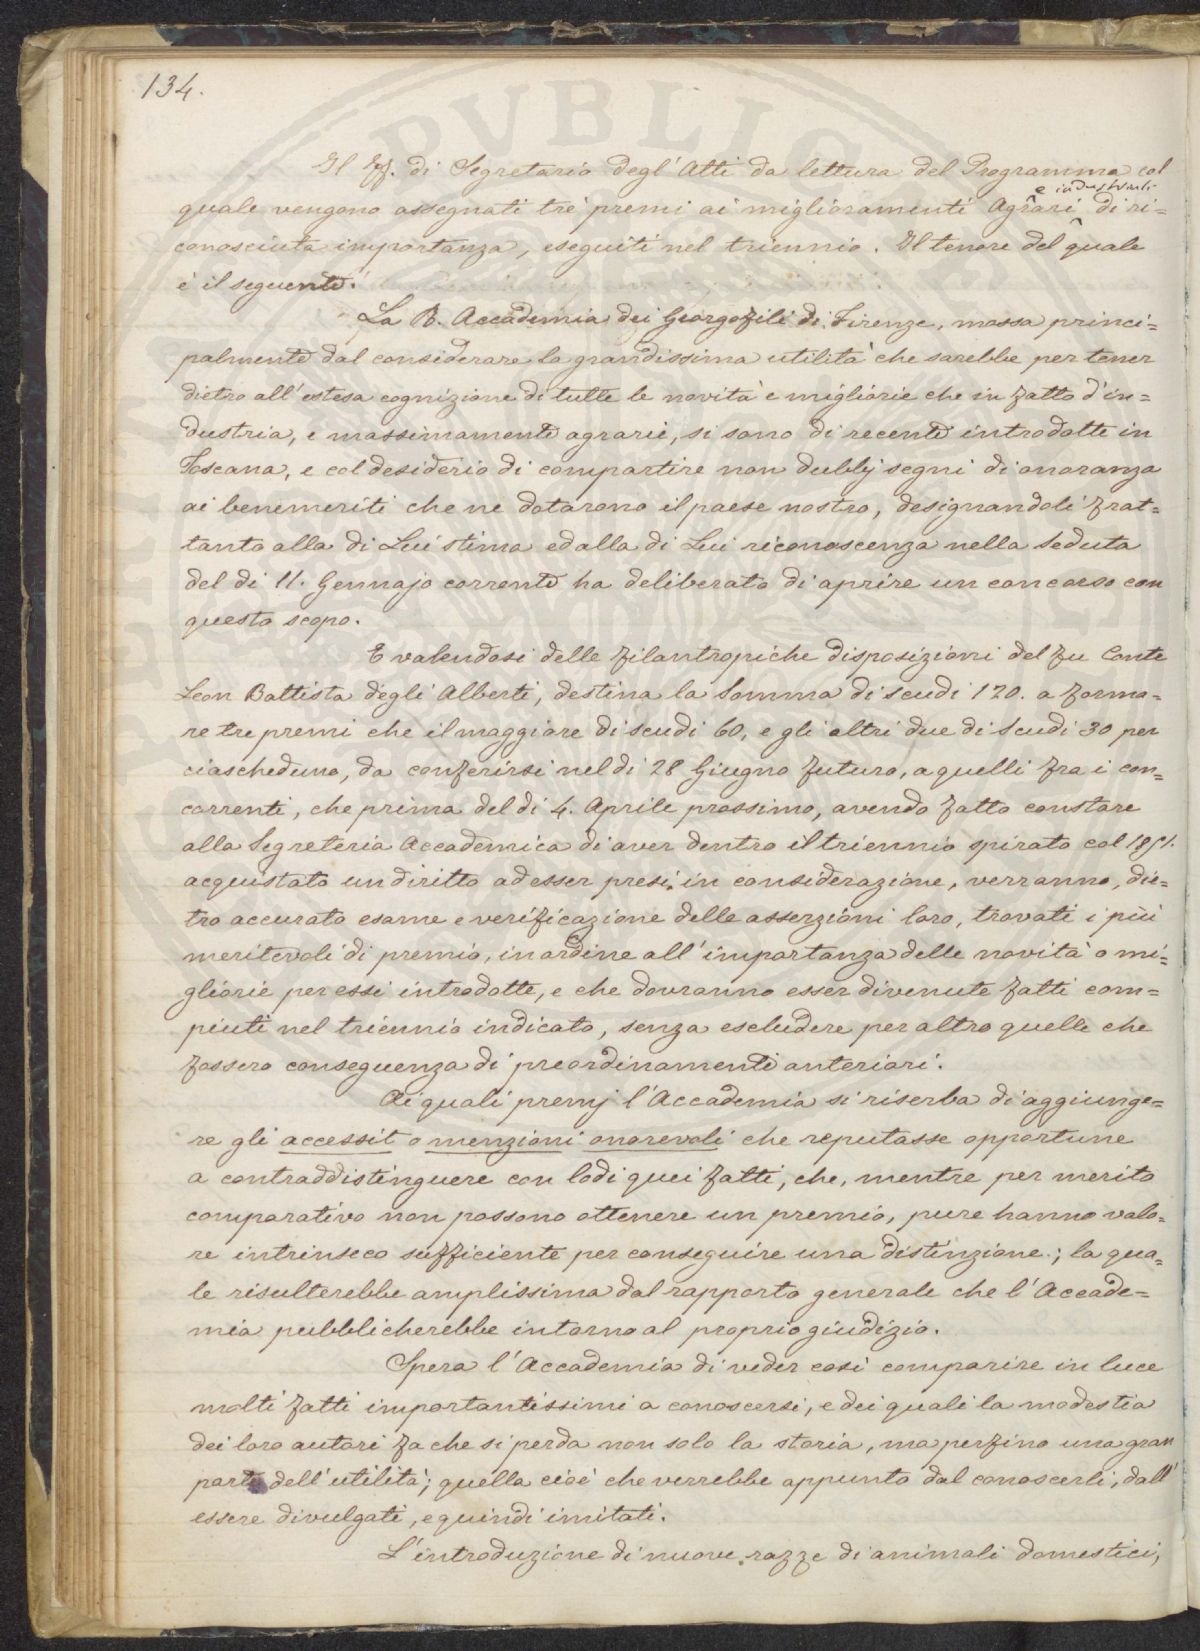 134.
PVBLIC
Il ff. di Segretario degl' Atti da lettura del Programma col
e industriali
quale vengono assegnati tre premi ai miglioramenti Agrari di ri=
conosciuta importanza, eseguiti nel triennio. Il tenore del quale
è il seguente:
La R. Accademia dei Georgofili di Firenze, mossa princi=
palmente dal considerare la grandissima utilità che sarebbe per tener
dietro all' estesa cognizione di tutte le novità e migliorie che in fatto d'in=
dustria, e massimamente agrarie, si sono di recente introdotte in
Toscana, e col desiderio di compartire non dubbj segni di onoranza
ai benemeriti che ne dotarono il paese nostro, designandoli frat=
tanto alla di Lui stima ed alla di Lui riconoscenza nella Seduta
del dì 11. Gennajo corrente ha deliberato di aprire un concorso con
questo scopo.
E valendosi delle filantropiche disposizioni del fu Conte
Leon Battista degli Alberti, destina la Somma di scudi 120. a forma=
re tre premi che il maggiore di scudi 60, e gli altri due di Scudi 30 per
ciascheduno, da conferirsi nel dì 28 Giugno futuro, a quelli fra i con=
correnti, che prima del dì 4. Aprile prossimo, avendo fatto constare
alla Segreteria Accademica di aver dentro il triennio spirato col 1851.
acquistato un diritto ad esser presi in considerazione, verranno, die=
tro accurato esame e verificazione delle asserzioni loro, trovati i più
meritevoli di premio, in ordine all' importanza delle novità o mi=
gliorie per essi introdotte, e che dovranno esser divenute fatti com=
piuti nel triennio indicato, senza escludere per altro quelle che
fossero conseguenza di preordinamenti anteriori.
Ai quali premj l'Accademia si riserba di aggiunge=
re gli accessit o menzioni onorevoli che reputasse opportune
a contraddistinguere con lodi quei fatti, che, mentre per merito
comparativo non possono ottenere un premio, pure hanno valo=
re intrinseco sufficiente per conseguire una distinzione; la qua=
le risulterebbe amplissima dal rapporto generale che l'Accade=
mia pubblicherebbe intorno al proprio giudizio.
Spera l'Accademia di veder così comparire in luce
molti fatti importantissimi a conoscersi, e dei quali la modestia
dei loro autori fa che si perda non solo la storia, ma perfino una gran
parte dell'utilità; quella cioè che verrebbe appunto dal conoscerli, dall'
essere divulgati, e quindi imitati.
L'introduzione di nuove razze di animali domestici,